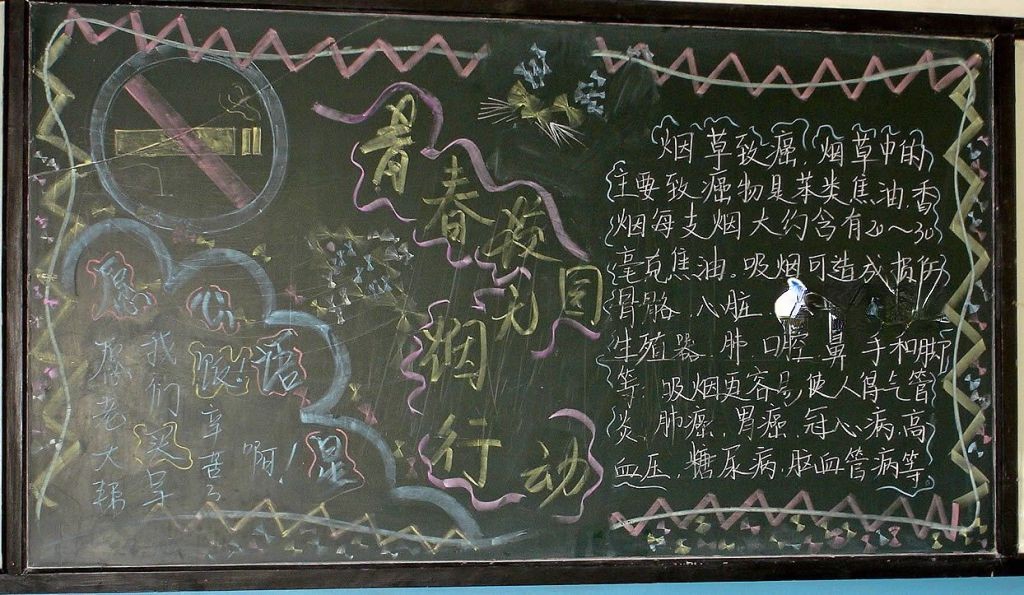 青春校园
无烟行动
烟草致癌,烟草中的
主要致癌物是苯类焦油,香
烟每支烟大约含有20~30
毫克焦油。吸烟可造成损伤
骨骼 心脏
生殖器 肺 口腔 鼻 手和脚
等。吸烟更容易使人得气管
炎,肺癌,胃癌,冠心病,高
血压,糖尿病,脑血管病等。
我们
老大
辛苦了
啊!
语
星